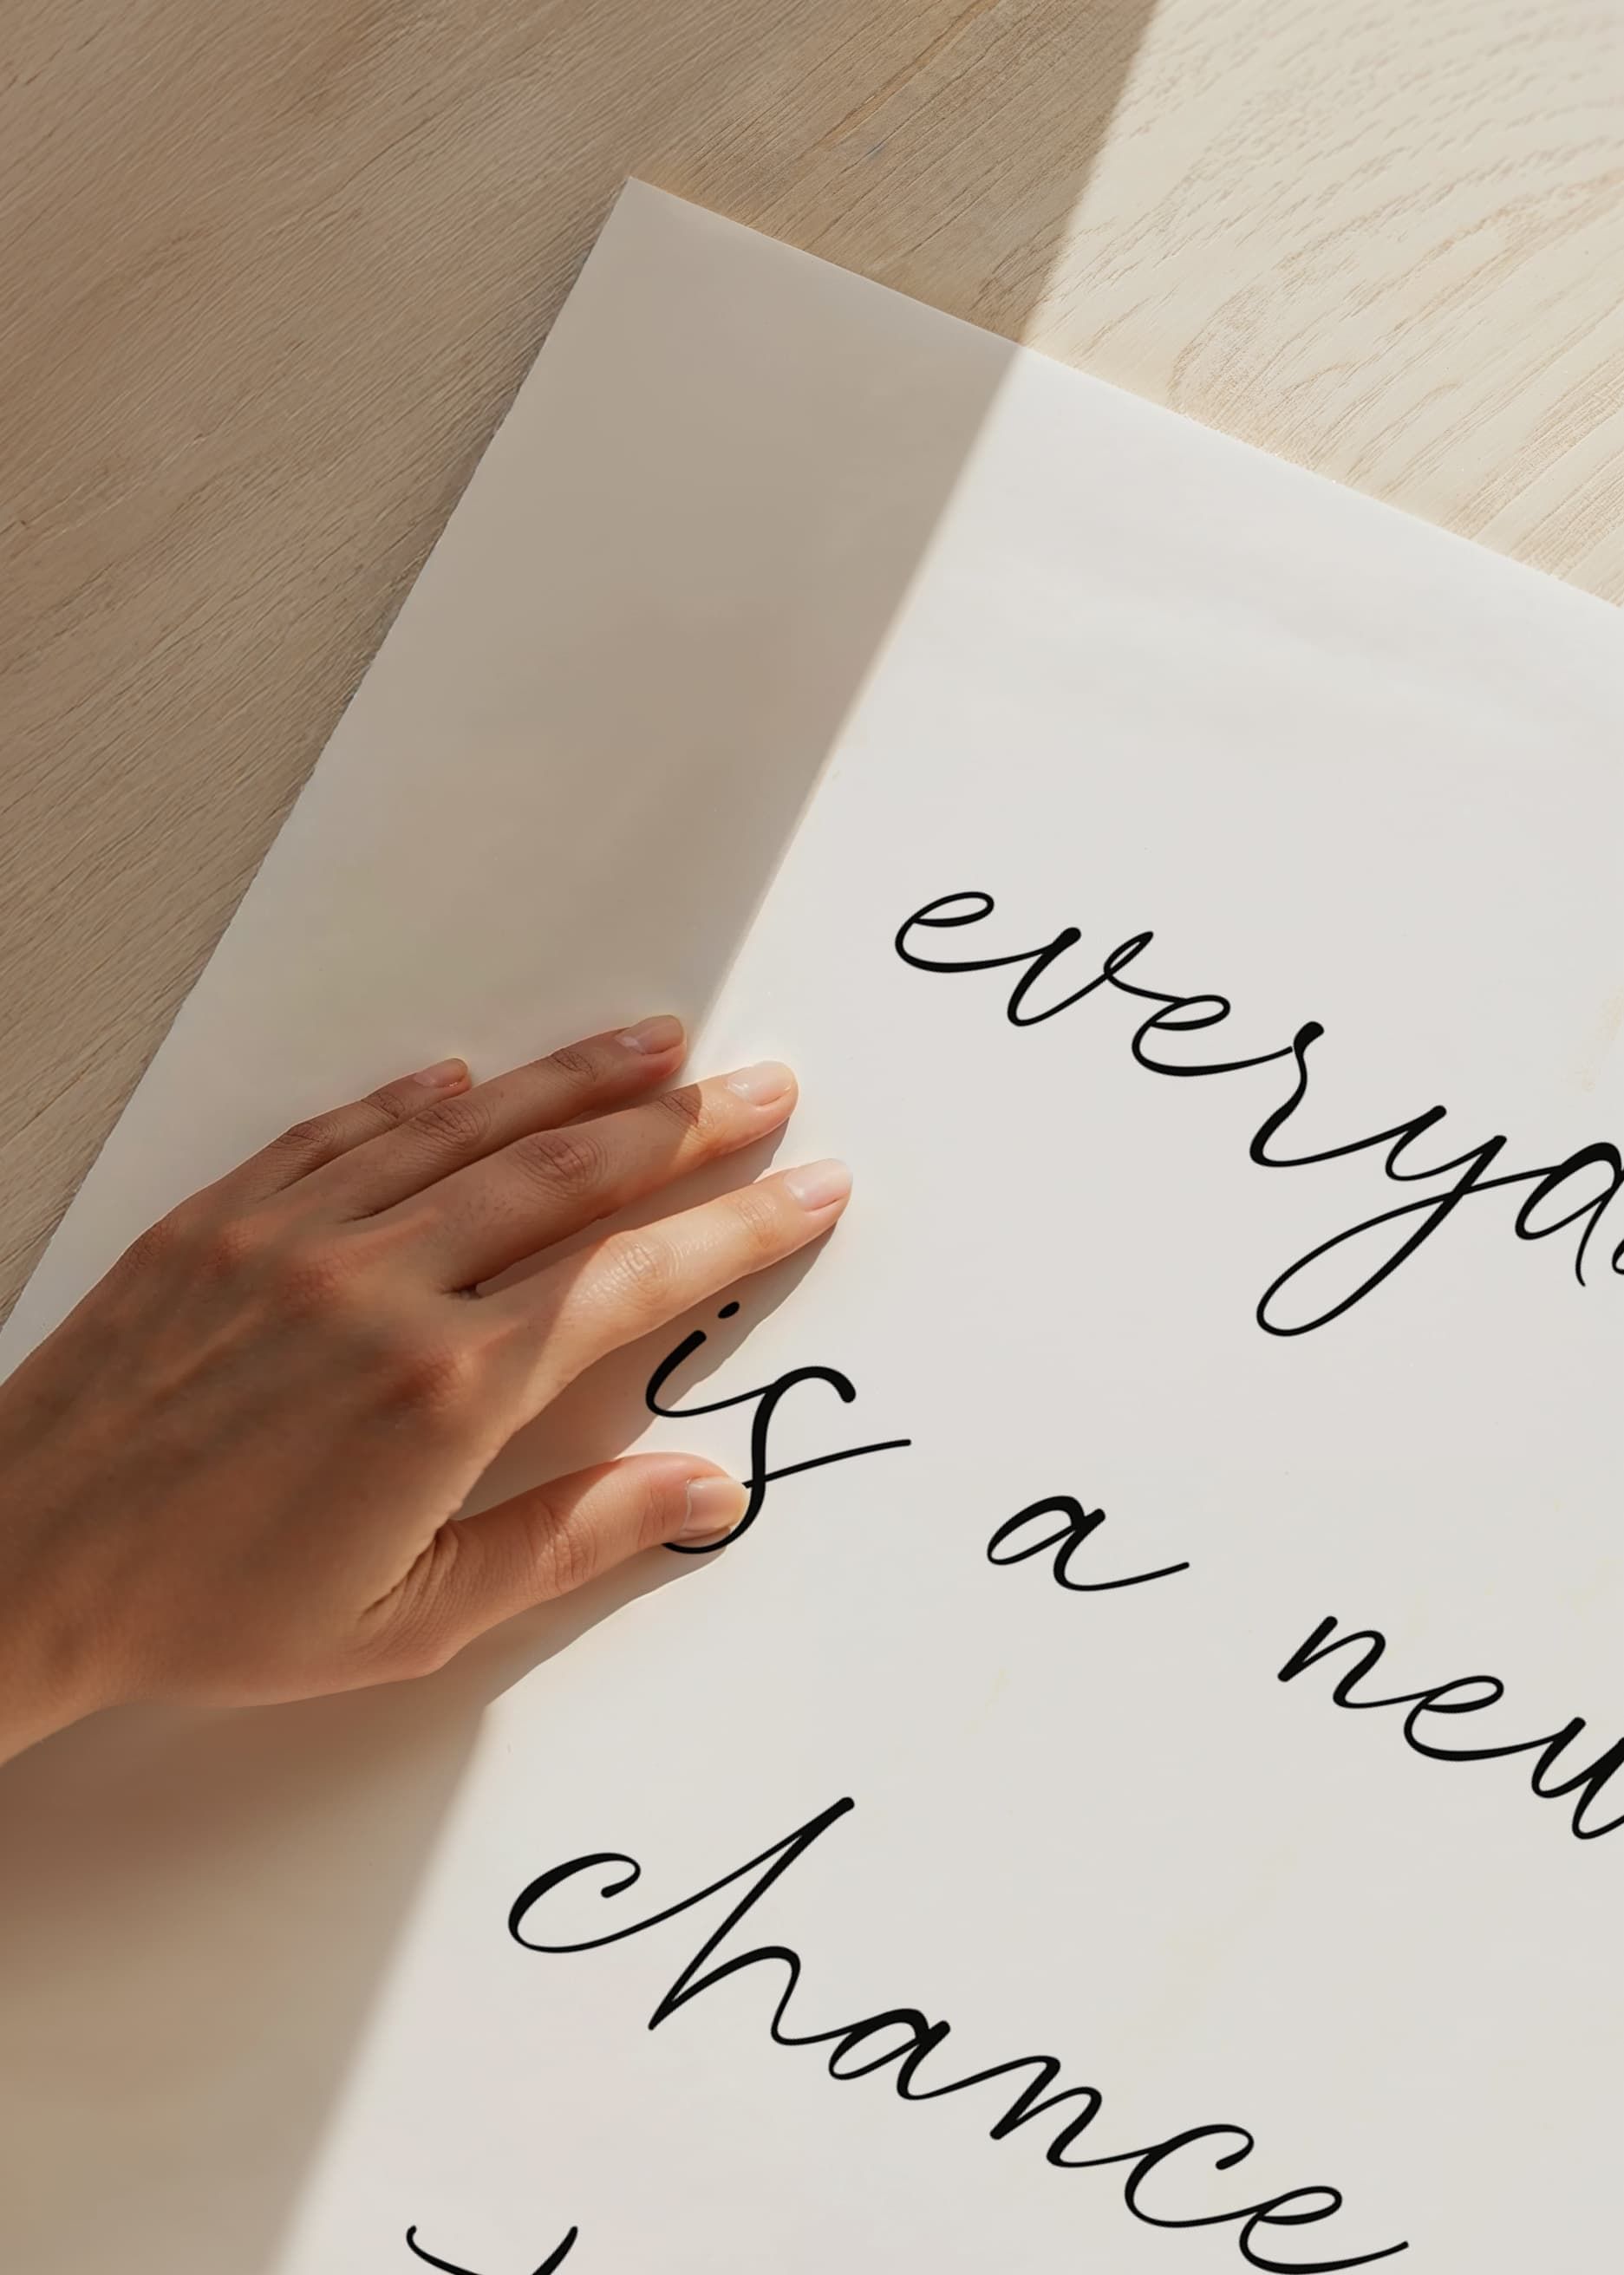 everyda
is a new
chance